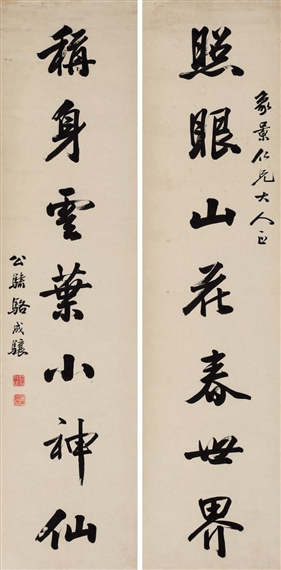 照眼山花春世界
象景仁兄大人正
稱身雲葉小神仙
公驌駱成驤